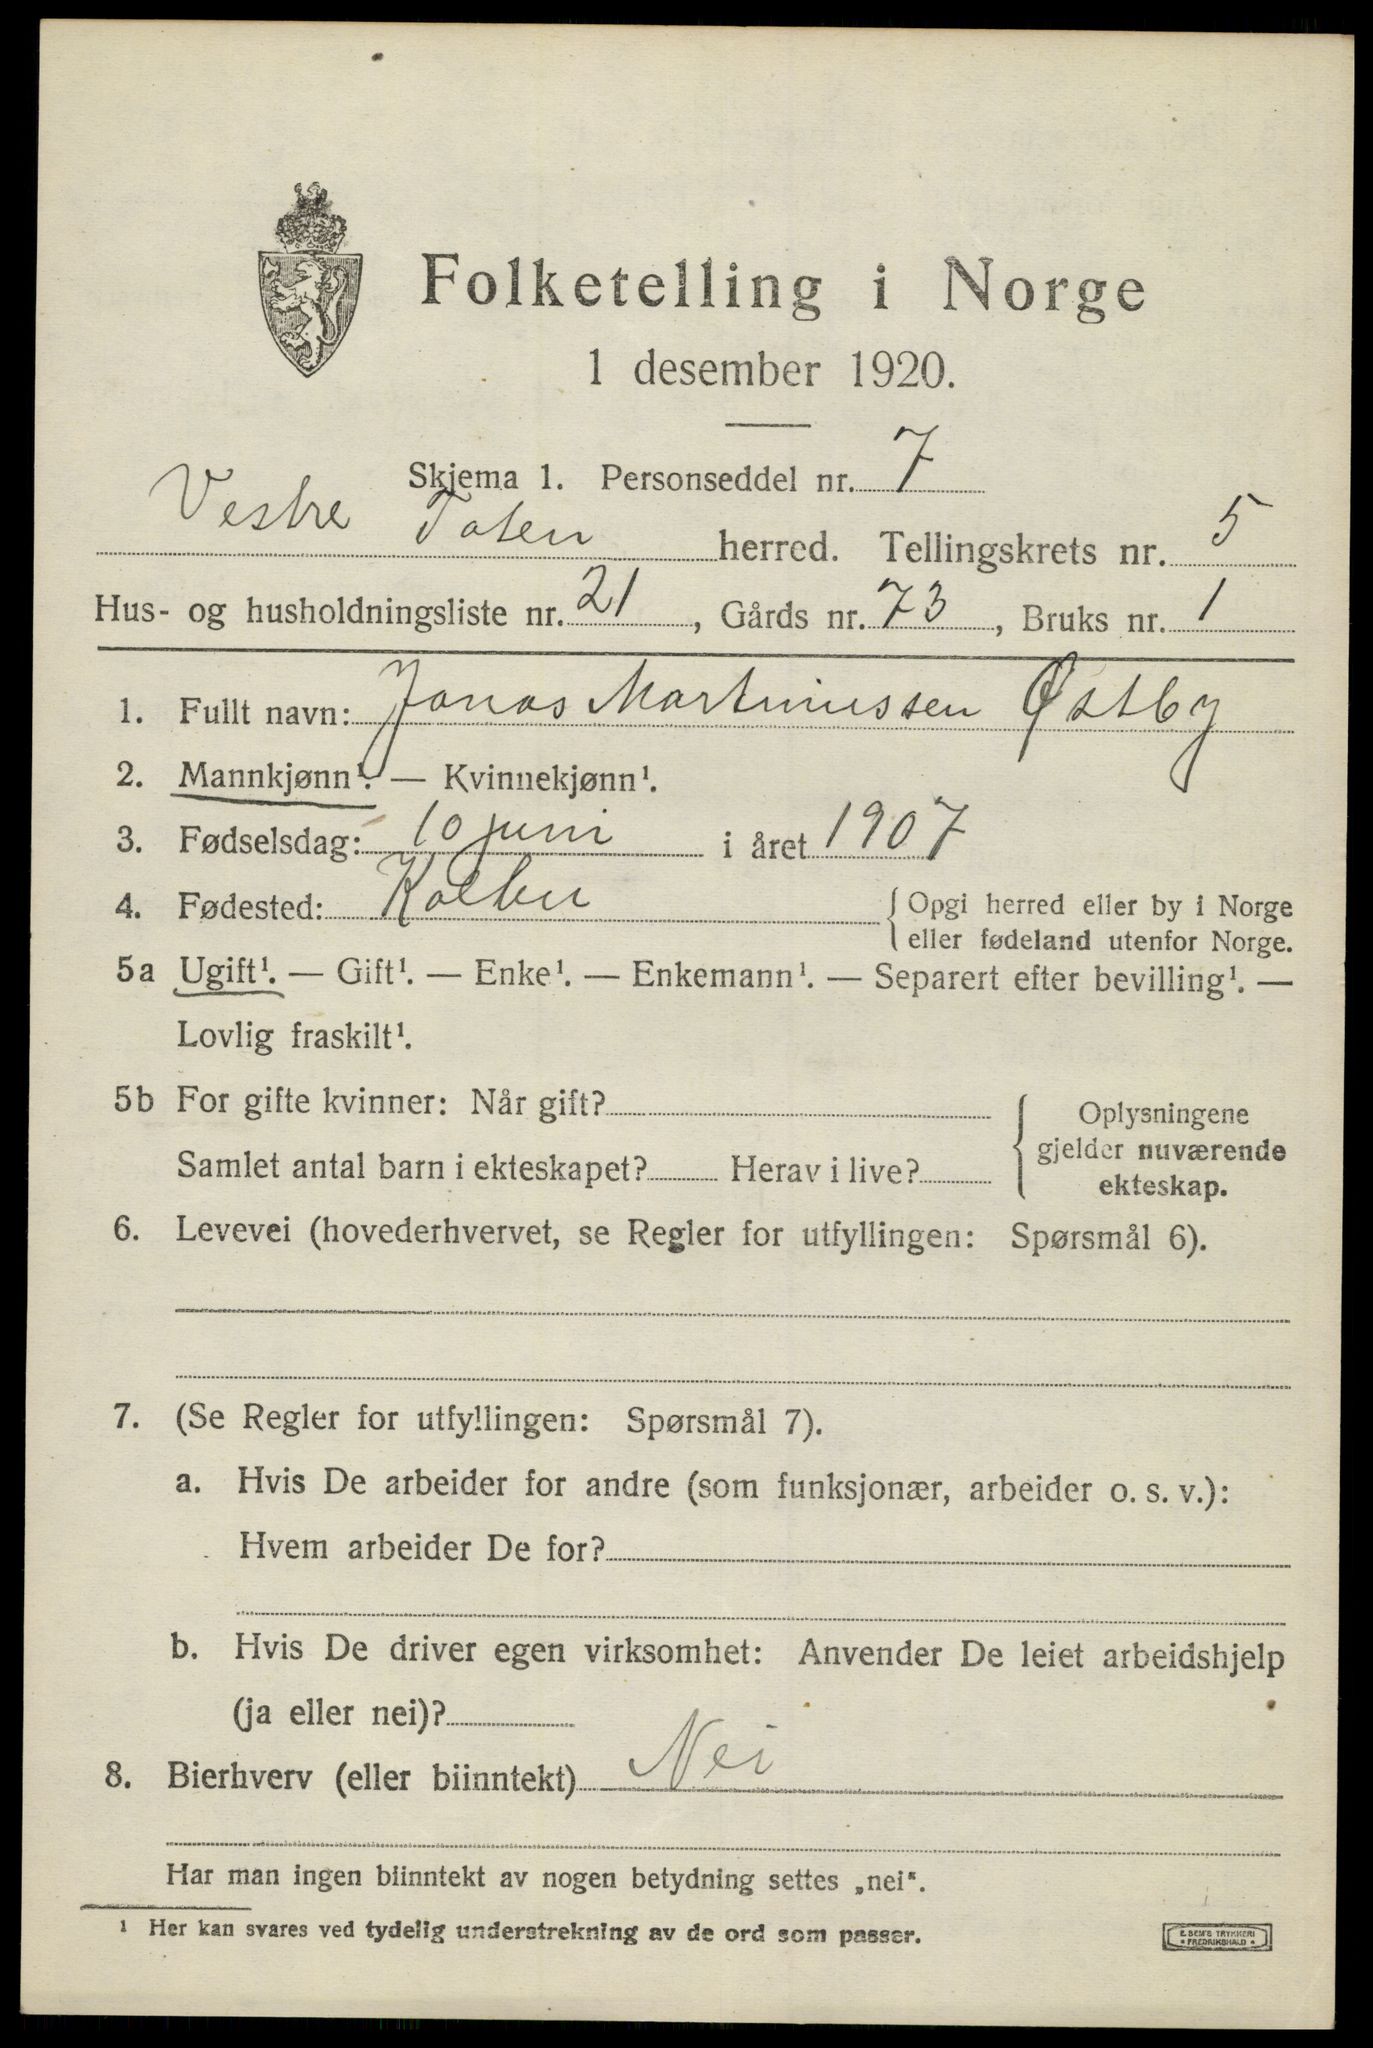 Folketelling i Norge
1 desember 1920.
Skjema 1. Personseddel nr. 7
Vestre Toten herred. Tellingskrets nr. 5
Hus- og husholdningsliste nr. 21, Gårds nr. 73, Bruks nr. 1
1. Fullt navn: Jonas Martinussen Østby
2. Mannkjønn¹. — Kvinnekjønn¹.
3. Fødselsdag: 10 juni i året 1907
4. Fødested: Kolbu { Opgi herred eller by i Norge
eller fødeland utenfor Norge.
5a Ugift¹. — Gift¹. — Enke¹. — Enkemann¹. — Separert efter bevilling¹. —
Lovlig fraskilt¹.
5b For gifte kvinner: Når gift? { Oplysningene
gjelder nuværende
Samlet antal barn i ekteskapet? Herav i live? ekteskap.
6. Levevei (hovederhvervet, se Regler for utfyllingen: Spørsmål 6).
7. (Se Regler for utfyllingen: Spørsmål 7).
a. Hvis De arbeider for andre (som funksjonær, arbeider o. s. v.):
Hvem arbeider De for?
b. Hvis De driver egen virksomhet: Anvender De leiet arbeidshjelp
(ja eller nei)?
8. Bierhverv (eller biinntekt) Nei
Har man ingen biinntekt av nogen betydning settes „nei".
¹ Her kan svares ved tydelig understrekning av de ord som passer.
E. SEM'S TRYKKERI
* FREDRIKSHALD *